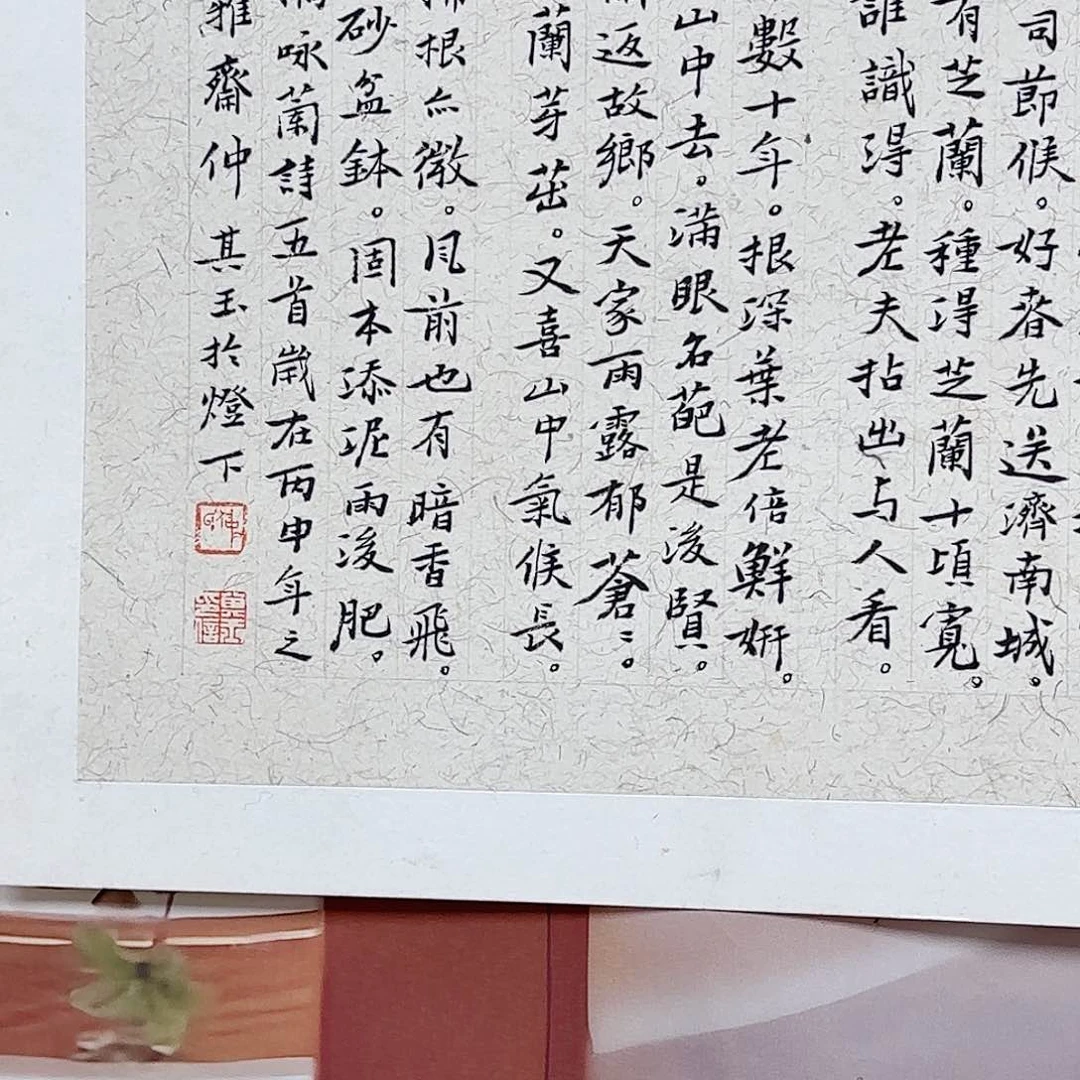 司節候。好春先送濟南城。
有芝蘭。種得芝蘭十頃寬。
誰識得。老夫拈出与人看。
數十年。根深葉老倍鮮妍。
山中去。滿眼名葩是後賢。
返故鄉。天家雨露郁蒼〻。
蘭芽茁。又喜山中氣候長。
根亦微。風前也有暗香飛。
砂盆鉢。固本添泥雨後肥。
咏蘭詩五首歲在丙申年之
雅齋仲其玉於燈下